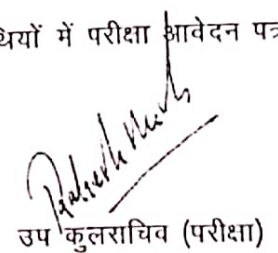 थियों में परीक्षा आवेदन पत्र
उप कुलसचिव (परीक्षा)